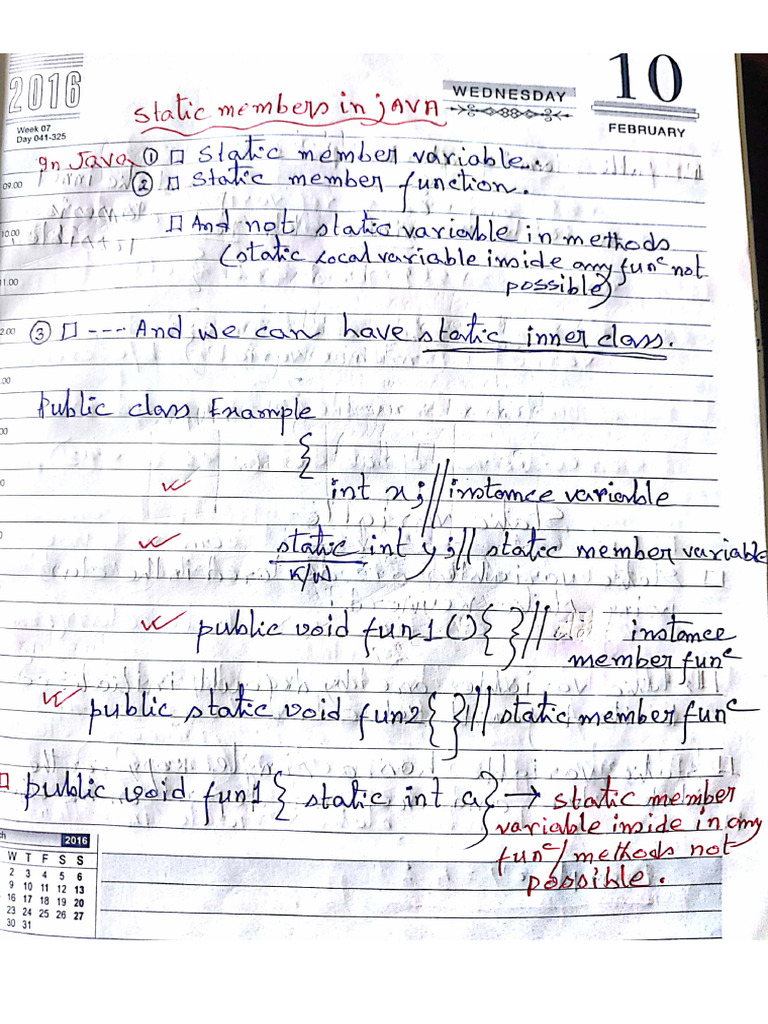 2016
Week 07
Day 041-325
WEDNESDAY
10
FEBRUARY
Static members in JAVA
In Java ① □ Static member variable.
② □ Static member function.
□ And not static variable in methods
(static Local variable inside any funᶜ not
possible)
③ □ --- And we can have static inner class.
Public class Example
{
int x; // instance variable
static int y; // static member variable
K/W
public void fun1(){ } // instance
member funᶜ
public static void fun2{ } // static member funᶜ
□ public void fun1 { static int a} → static member
variable inside in any
funᶜ/methods not
possible.
09.00
10.00
11.00
2016
W T F S S
2 3 4 5 6
9 10 11 12 13
16 17 18 19 20
23 24 25 26 27
30 31